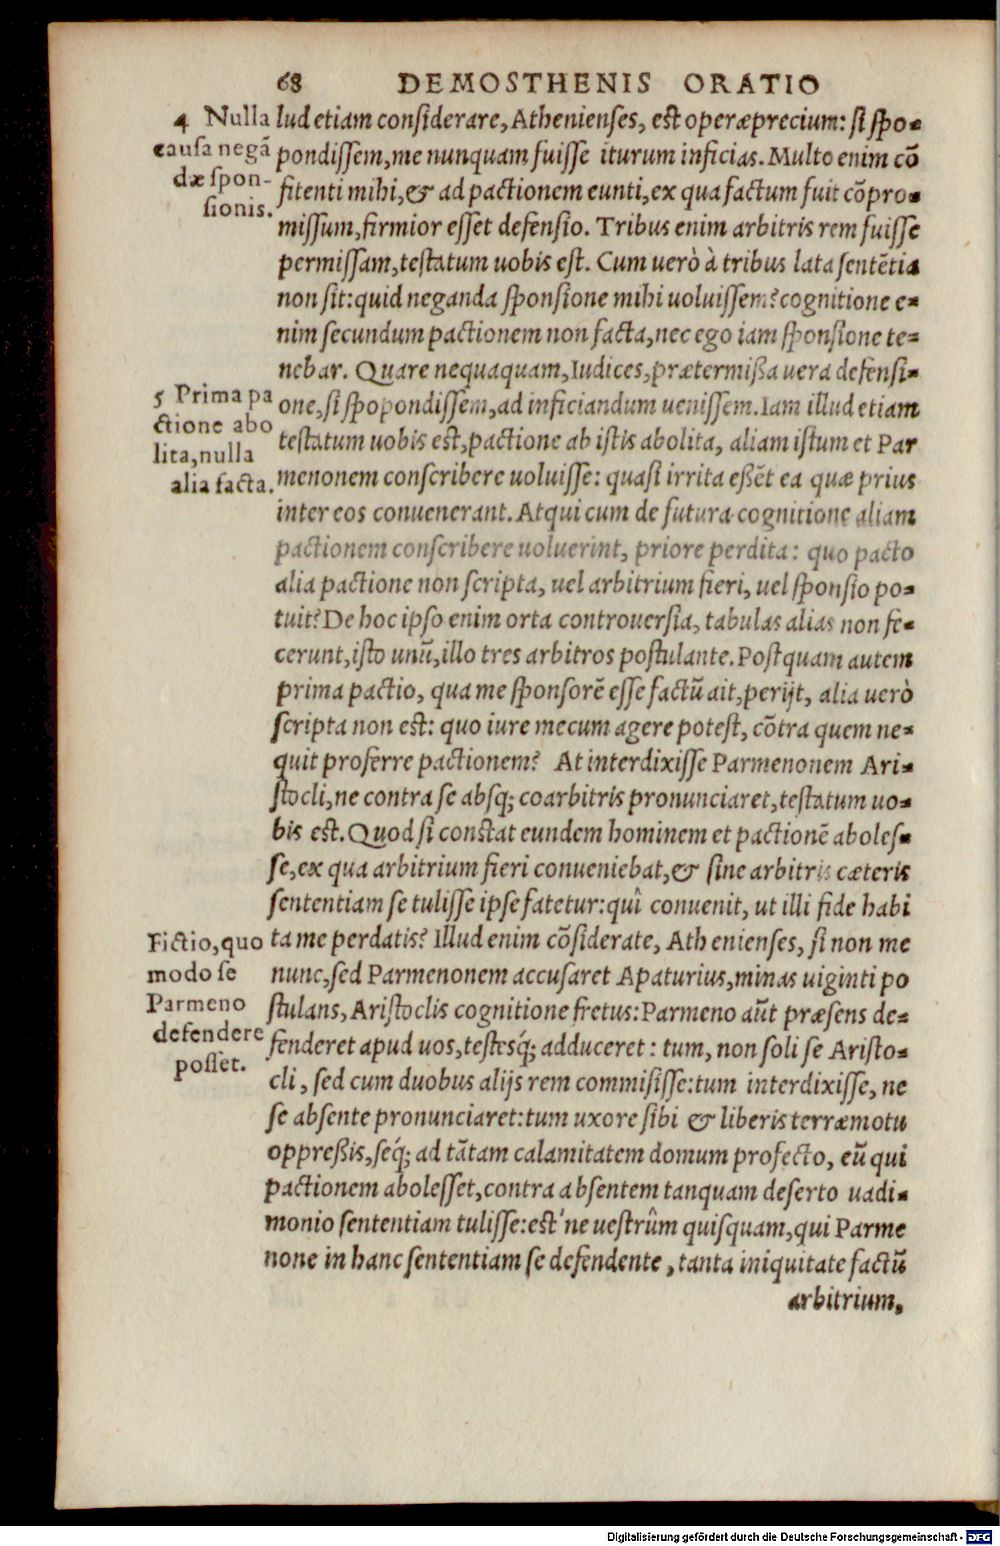 68 DEMOSTHENIS ORATIO
4 Nulla
causa negã
dæ spon-
sionis.
lud etiam considerare, Athenienses, est operæprecium: si spo-
pondissem, me nunquam fuisse iturum inficias. Multo enim cõ
fitenti mihi, & ad pactionem eunti, ex qua factum fuit cõpro-
missum, firmior esset defensio. Tribus enim arbitris rem fuisse
permissam, testatum uobis est. Cum uerò à tribus lata sentẽtia
non sit: quid neganda sponsione mihi uoluissem? cognitione e-
nim secundum pactionem non facta, nec ego iam sponsione te-
nebar. Quare nequaquam, Iudices, prætermißa uera defensi-
5 Prima pa
ctione abo
lita, nulla
alia facta.
one, si spopondissem, ad inficiandum uenissem. Iam illud etiam
testatum uobis est, pactione ab istis abolita, aliam istum et Par
menonem conscribere uoluisse: quasi irrita eßẽt ea quæ prius
inter eos conuenerant. Atqui cum de futura cognitione aliam
pactionem conscribere uoluerint, priore perdita: quo pacto
alia pactione non scripta, uel arbitrium fieri, uel sponsio po-
tuit? De hoc ipso enim orta controuersia, tabulas alias non fe-
cerunt, isto unũ, illo tres arbitros postulante. Postquam autem
prima pactio, qua me sponsorẽ esse factũ ait, perijt, alia uerò
scripta non est: quo iure mecum agere potest, cõtra quem ne-
quit proferre pactionem? At interdixisse Parmenonem Ari-
stocli, ne contra se absq; coarbitris pronunciaret, testatum uo-
bis est. Quod si constat eundem hominem et pactionẽ aboles-
se, ex qua arbitrium fieri conueniebat, & sine arbitris cæteris
sententiam se tulisse ipse fatetur: quî conuenit, ut illi fide habi
Fictio, quo
modo se
Parmeno
defendere
posset.
ta me perdatis? Illud enim cõsiderate, Athenienses, si non me
nunc, sed Parmenonem accusaret Apaturius, minas uiginti po
stulans, Aristoclis cognitione fretus: Parmeno aũt præsens de-
fenderet apud uos, testesq́; adduceret: tum, non soli se Aristo-
cli, sed cum duobus alijs rem commisisse: tum interdixisse, ne
se absente pronunciaret: tum uxore sibi & liberis terræmotu
oppreßis, seq́; ad tãtam calamitatem domum profecto, eũ qui
pactionem abolesset, contra absentem tanquam deserto uadi-
monio sententiam tulisse: est'ne uestrûm quisquam, qui Parme
none in hanc sententiam se defendente, tanta iniquitate factũ
arbitrium,
Digitalisierung gefördert durch die Deutsche Forschungsgemeinschaft - DFG